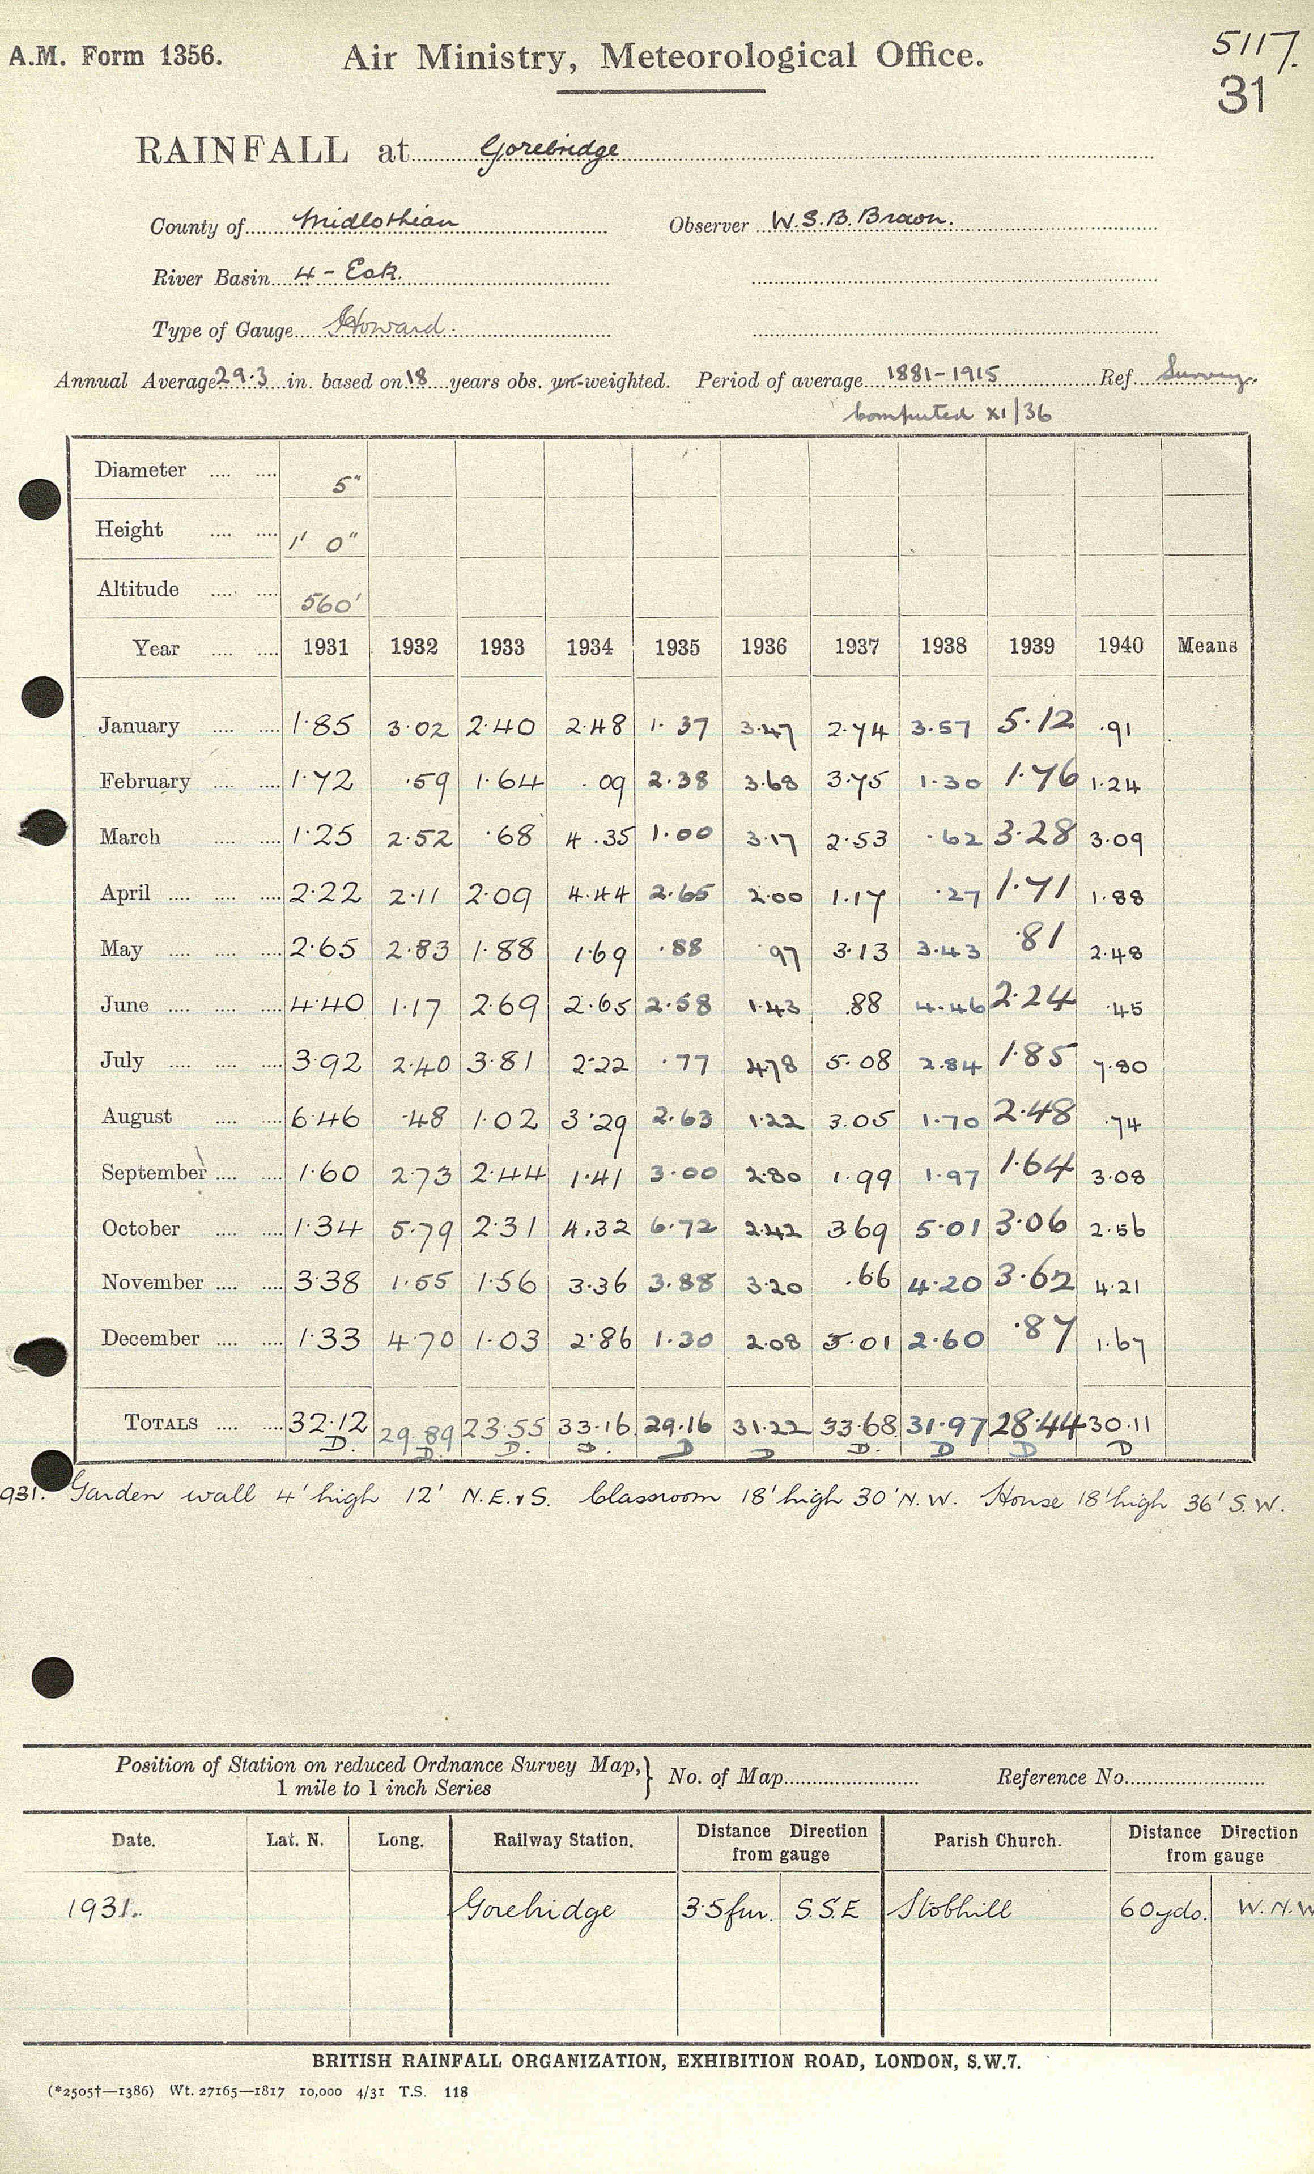 A.M. Form 1356. Air Ministry, Meteorological Office. 5117.
31
RAINFALL at Gorebridge
County of Midlothian Observer W.S.B. Brown.
River Basin 4 - Esk.
Type of Gauge Howard.
Annual Average 29.3 in. based on 18 years obs. un-weighted. Period of average 1881-1915 Ref. Survey.
Computed XI/36
Diameter 5"
Height 1' 0"
Altitude 560'
Year 1931 1932 1933 1934 1935 1936 1937 1938 1939 1940 Means
January 1.85 3.02 2.40 2.48 1.37 3.47 2.74 3.57 5.12 .91
February 1.72 .59 1.64 .09 2.38 3.68 3.75 1.30 1.76 1.24
March 1.25 2.52 .68 4.35 1.00 3.17 2.53 .62 3.28 3.09
April 2.22 2.11 2.09 4.44 2.65 2.00 1.17 .27 1.71 1.88
May 2.65 2.83 1.88 1.69 .88 .97 3.13 3.43 .81 2.48
June 4.40 1.17 2.69 2.65 2.58 1.43 .88 4.46 2.24 .45
July 3.92 2.40 3.81 2.22 .77 4.78 5.08 2.84 1.85 7.80
August 6.46 .48 1.02 3.29 2.63 1.22 3.05 1.70 2.48 .74
September 1.60 2.73 2.44 1.41 3.00 2.80 1.99 1.97 1.64 3.08
October 1.34 5.79 2.31 4.32 6.72 2.42 3.69 5.01 3.06 2.56
November 3.38 1.55 1.56 3.36 3.88 3.20 .66 4.20 3.62 4.21
December 1.33 4.70 1.03 2.86 1.30 2.08 5.01 2.60 .87 1.67
TOTALS 32.12 29.89 23.55 33.16 29.16 31.22 33.68 31.97 28.44 30.11
D. D. D. D. D D D. D D D
931. Garden wall 4' high 12' N.E. & S. Classroom 18' high 30' N.W. House 18' high 36' S.W.
Position of Station on reduced Ordnance Survey Map, 1 mile to 1 inch Series } No. of Map Reference No.
Date. Lat. N. Long. Railway Station. Distance Direction from gauge Parish Church. Distance Direction from gauge
1931. Gorebridge 3.5 fur. S.S.E Stobhill 60 yds. W.N.W
BRITISH RAINFALL ORGANIZATION, EXHIBITION ROAD, LONDON, S.W.7.
(*2505†—1386) Wt. 27165—1817 10,000 4/31 T.S. 118